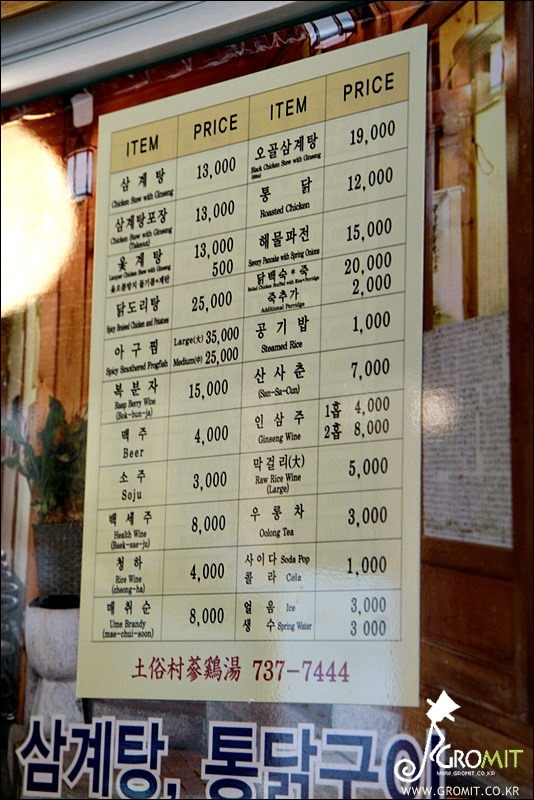 ITEM PRICE ITEM PRICE
삼계탕 13,000 오골삼계탕 19,000
Chicken Stew with Ginseng Black Chicken Stew with Ginseng
삼계탕포장 13,000 통 닭 12,000
Chicken Stew with Ginseng Roasted Chicken
(Takeout)
옻계탕 13,000 해물파전 15,000
Lacquer Chicken Stew with Ginseng 500 Savory Pancake with Spring Onions
닭도리탕 25,000 닭백숙*죽 20,000
Spicy Braised Chicken and Potatoes 죽추가 2,000
Additional Porridge
아구찜 Large(大) 35,000 공기밥 1,000
Spicy Smothered Frogfish Medium(中) 25,000 Steamed Rice
복분자 15,000 산사춘 7,000
Rasp Berry Wine (San-Sa-Cun)
(Bok-bun-ja)
맥주 4,000 인삼주 1홉 4,000
Beer Ginseng Wine 2홉 8,000
소주 3,000 막걸리(大) 5,000
Soju Raw Rice Wine
(Large)
백세주 8,000 우롱차 3,000
Health Wine Oolong Tea
(Baek-sae-ju)
청하 4,000 사이다 Soda Pop 1,000
Rice Wine 콜라 Cola
(cheong-ha)
매취순 8,000 얼음 Ice 3,000
Ume Brandy 생수 Spring Water 3 000
(mae-chui-soon)
土俗村蔘鷄湯 737-7444
삼계탕, 통닭구이
GROMIT
WWW.GROMIT.CO.KR
WWW.GROMIT.CO.KR